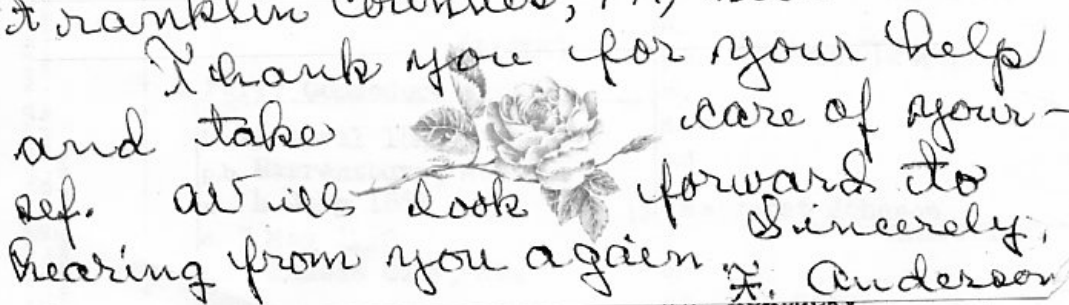 Franklin Counties,
Thank you for your help
and take care of your-
sef. Will look forward to
hearing from you again
Sincerely,
F. Anderson